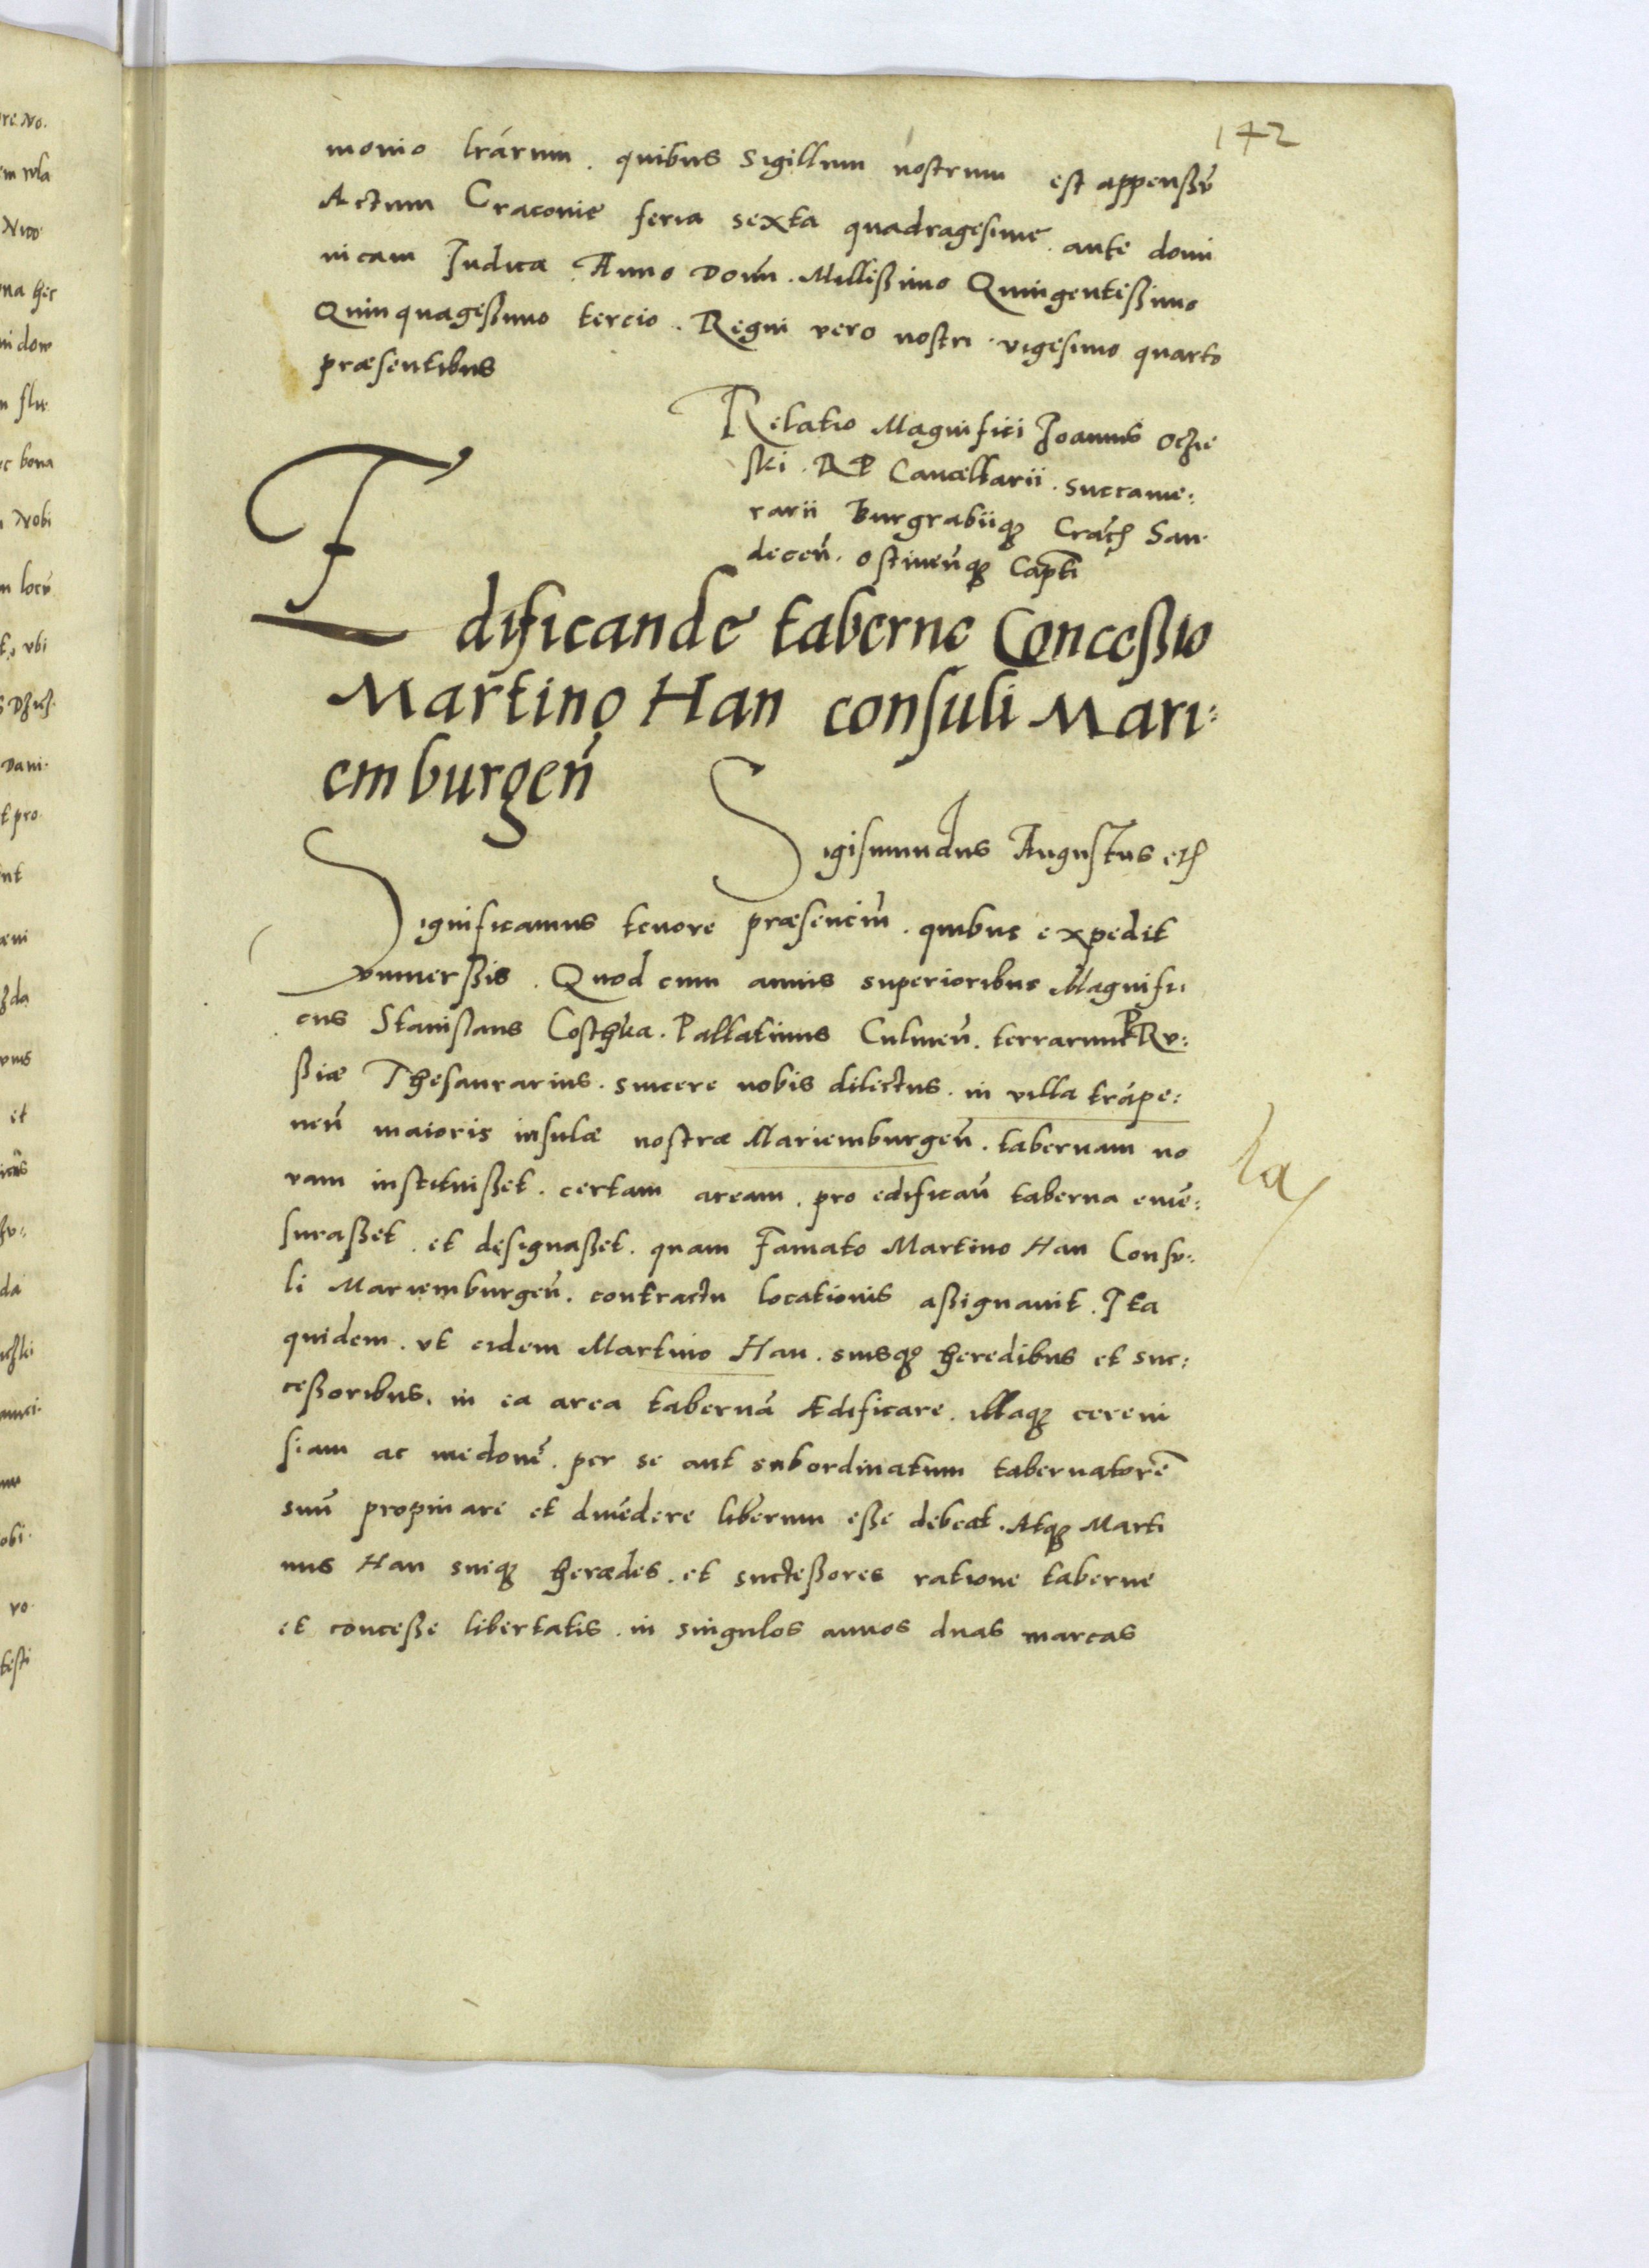 142
monio lrárum. quibus sigillum nostrum est appenßũ
Actum Cracovię feria sexta quadragesimę ante domi
nicam Iudica Anno Domĩ. Millißimo Quingentißimo
Quinquageßimo tercio. Regni vero nostri vigesimo quarto
præsentibus
Relatio Magnifici Joannis Oczie
ski. RP Cancellarii. succame:
rarii Burgrabiiqȝ Crac̃ San
decen̄. Ostinen̄qȝ Capti
Ędificandę tabernę Conceßio
Martino Han consuli Mari:
emburgen̄
Sigismundus Augustus etc
Significamus tenore præsenciũ. quibus expedit
vniuerßis. Quod cum annis superioribus Magnifi
cus Stanislaus Costhka. Pallatinus Culmen̄. terrarum PRu:
ßiæ Thesaurarius. sincere nobis dilectus. in villa trápe:
nen̄ maioris insulæ nostræ Mariemburgen̄. tabernam no
vam instituißet. certam aream. pro edifican̄ taberna emẽ:
suraßet et designaßet. quam Famato Martino Han Consu:
li Mariemburgen̄. contractu locationis aßignauit. Ita
quidem. vt eidem Martino Han. suisqȝ heredibus et suc:
ceßoribus. in ea area tabernã Ædificare. illaqȝ cereui
siam ac medonẽ. per se aut subordinatum tabernatorẽ
suũ propinare et diuẽdere liberum eße debeat. Atqȝ Marti
nus Han suiqȝ herædes. et succeßores ratione tabernę
et conceßę libertatis. in singulos annos duas marcas